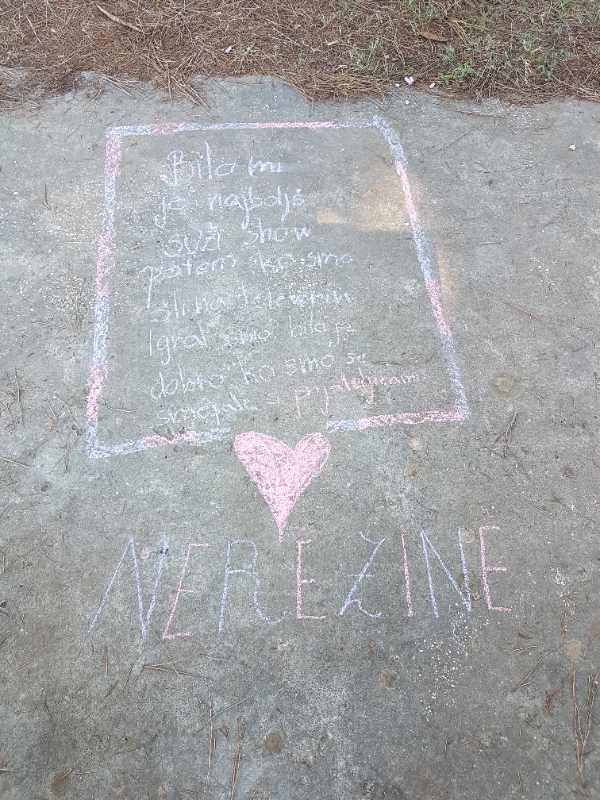 Bila mi
je najbolj
show
potem ko smo
šli na
Igral smo bila je
dobro ko smo se
smejale s prjateljicami
NEREZINE